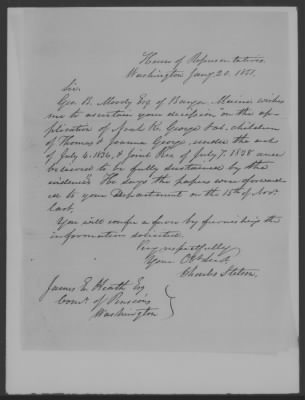 House of Representatives
Washington Jany 20. 1851.
Sir.
Geo. B. Moody Esq of Bangor, Maine, wishes
me to ascertain your decision on the ap-
plication of George children
of Thomas & Joanna George, under the act
of July 4. 1836, & Joint Res of July 7. 1838
to be fully sustained by the
evidence. He says the papers were forward-
ed to your Department on the 15th of Novr
last.
You will confer a favor by furnishing the
information solicited.
Very respectfully
Your Obt Servt.
Charles Stetson.
James E. Heath Esq
Comr. of Pensions
Washington